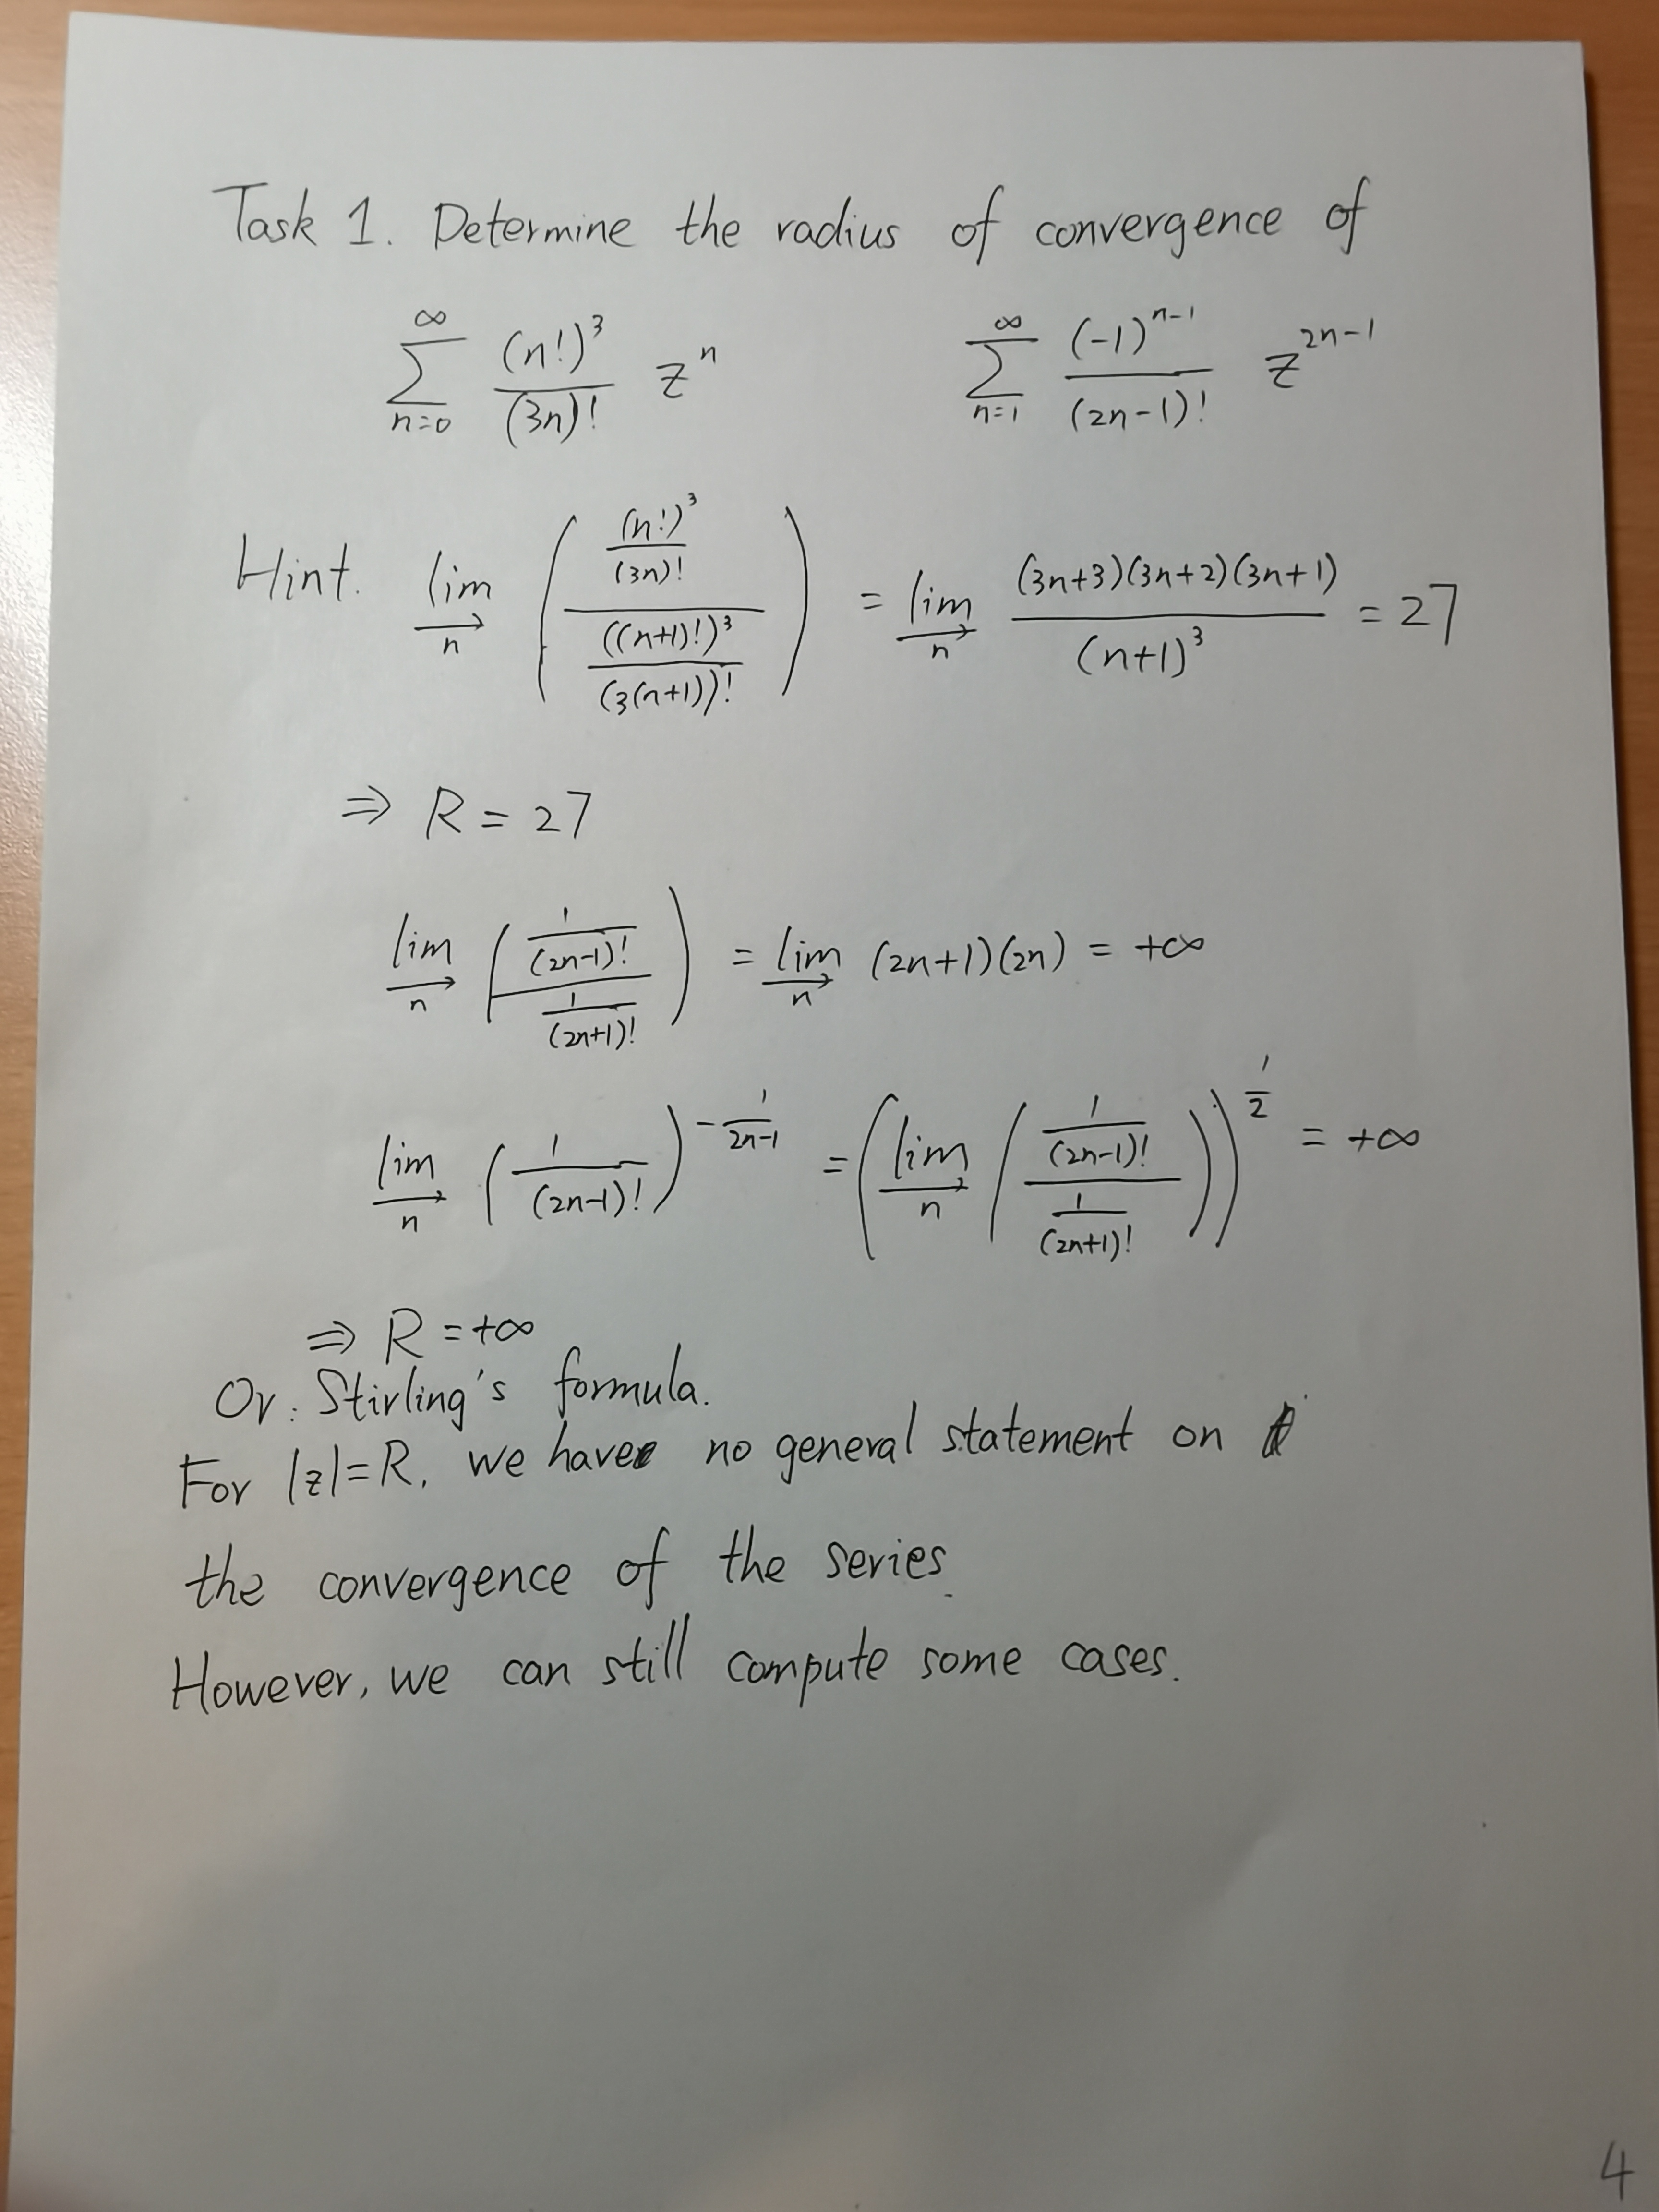 Task 1. Determine the radius of convergence of
∑_{n=0}^{∞} \frac{(n!)^3}{(3n)!} z^n   ∑_{n=1}^{∞} \frac{(-1)^{n-1}}{(2n-1)!} z^{2n-1}
Hint. \lim_{\overrightarrow{n}} \left( \frac{\frac{(n!)^3}{(3n)!}}{\frac{((n+1)!)^3}{(3(n+1))!}} \right) = \lim_{\overrightarrow{n}} \frac{(3n+3)(3n+2)(3n+1)}{(n+1)^3} = 27
⇒ R = 27
\lim_{\overrightarrow{n}} \left( \frac{\frac{1}{(2n-1)!}}{\frac{1}{(2n+1)!}} \right) = \lim_{\overrightarrow{n}} (2n+1)(2n) = +∞
\lim_{\overrightarrow{n}} \left( \frac{1}{(2n-1)!} \right)^{-\frac{1}{2n-1}} = \left( \lim_{\overrightarrow{n}} \left( \frac{\frac{1}{(2n-1)!}}{\frac{1}{(2n+1)!}} \right) \right)^{\frac{1}{2}} = +∞
⇒ R = +∞
Or: Stirling's formula.
For |z|=R, we have no general statement on
the convergence of the series.
However, we can still compute some cases.
4